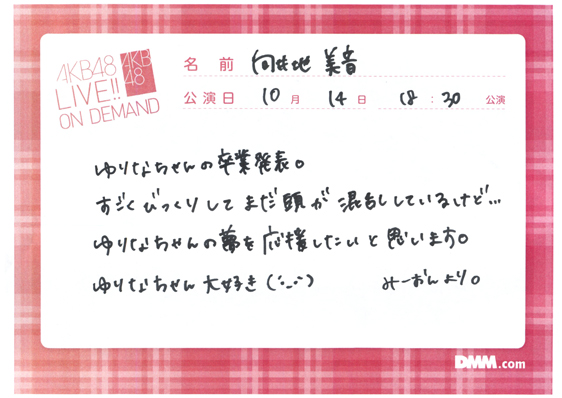 AKB48
LIVE!!
ON DEMAND
AKB
48
名前 向井地 美音
公演日 10月 14日 18:30 公演
ゆりなちゃんの卒業発表。
すごくびっくりしてまだ頭が混乱しているけど…
ゆりなちゃんの夢を応援したいと思います。
ゆりなちゃん大好き(´._.`) みーおんより。
DMM.com